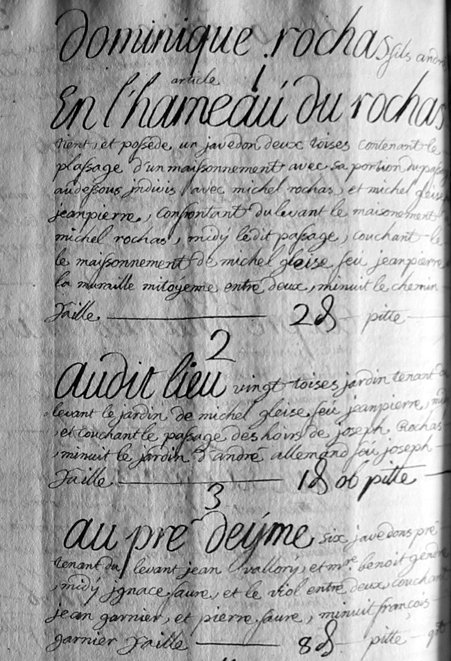 Dominique rochas fils andré
article 1
En l'hameau du rochas
tient, et possède un javedon deux toises contenant le
plassage d'un maisonnement avec sa portion du passage
audessous indivis avec michel rochas, et michel gleise
jeanpierre, confrontant du levant le maisonnement
michel rochas, midy ledit passage, couchant le
le maisonnement de michel gleise feu jeanpierre
la muraille mitoyenne entre deux, minuit le chemin
Taille 2 pitte
2
audit lieu vingt toises jardin tenant du
levant le jardin de michel gleise feu jeanpierre, midy
et couchant le passage des hoirs de joseph Rochas
minuit le jardin d'andré allemand feu joseph
Taille 1 06 pitte
3
au pre deyme six javedons pré
tenant du levant jean vallory, et mre benoit
midy jgnace faure, et le viol entre deux, couchant
jean garnier, et pierre faure, minuit françois
garnier Taille 8 pitte